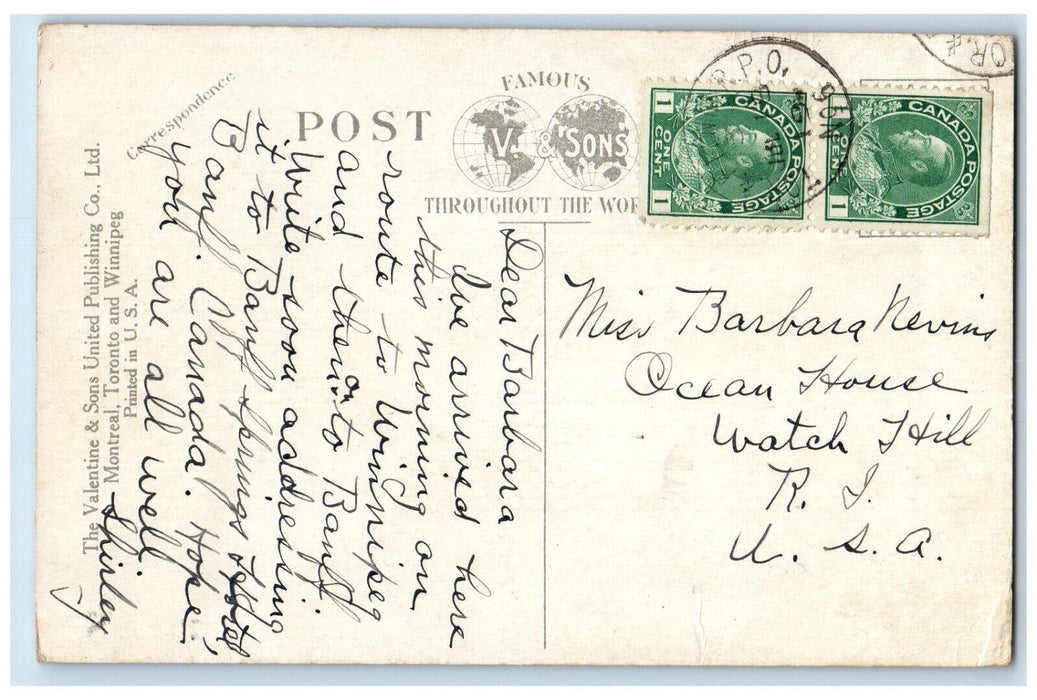 FAMOUS
POST
V. & SONS
THROUGHOUT THE WOR
Correspondence
The Valentine & Sons United Publishing Co., Ltd.
Montreal, Toronto and Winnipeg
Printed in U. S. A.
Dear Barbara
Ive arrived here
this morning on
route to Winnipeg
and then on to Banff
Write soon addressing
it to Banff Springs Hotel,
Banff, Canada. Hope
you are all well
Shirley
Miss Barbara Nevins
Ocean House
Watch Hill
R. I.
U. S. A.
CANADA POSTAGE
1 ONE CENT 1
CANADA POSTAGE
ONE CENT 1
R. P. O.
OR.